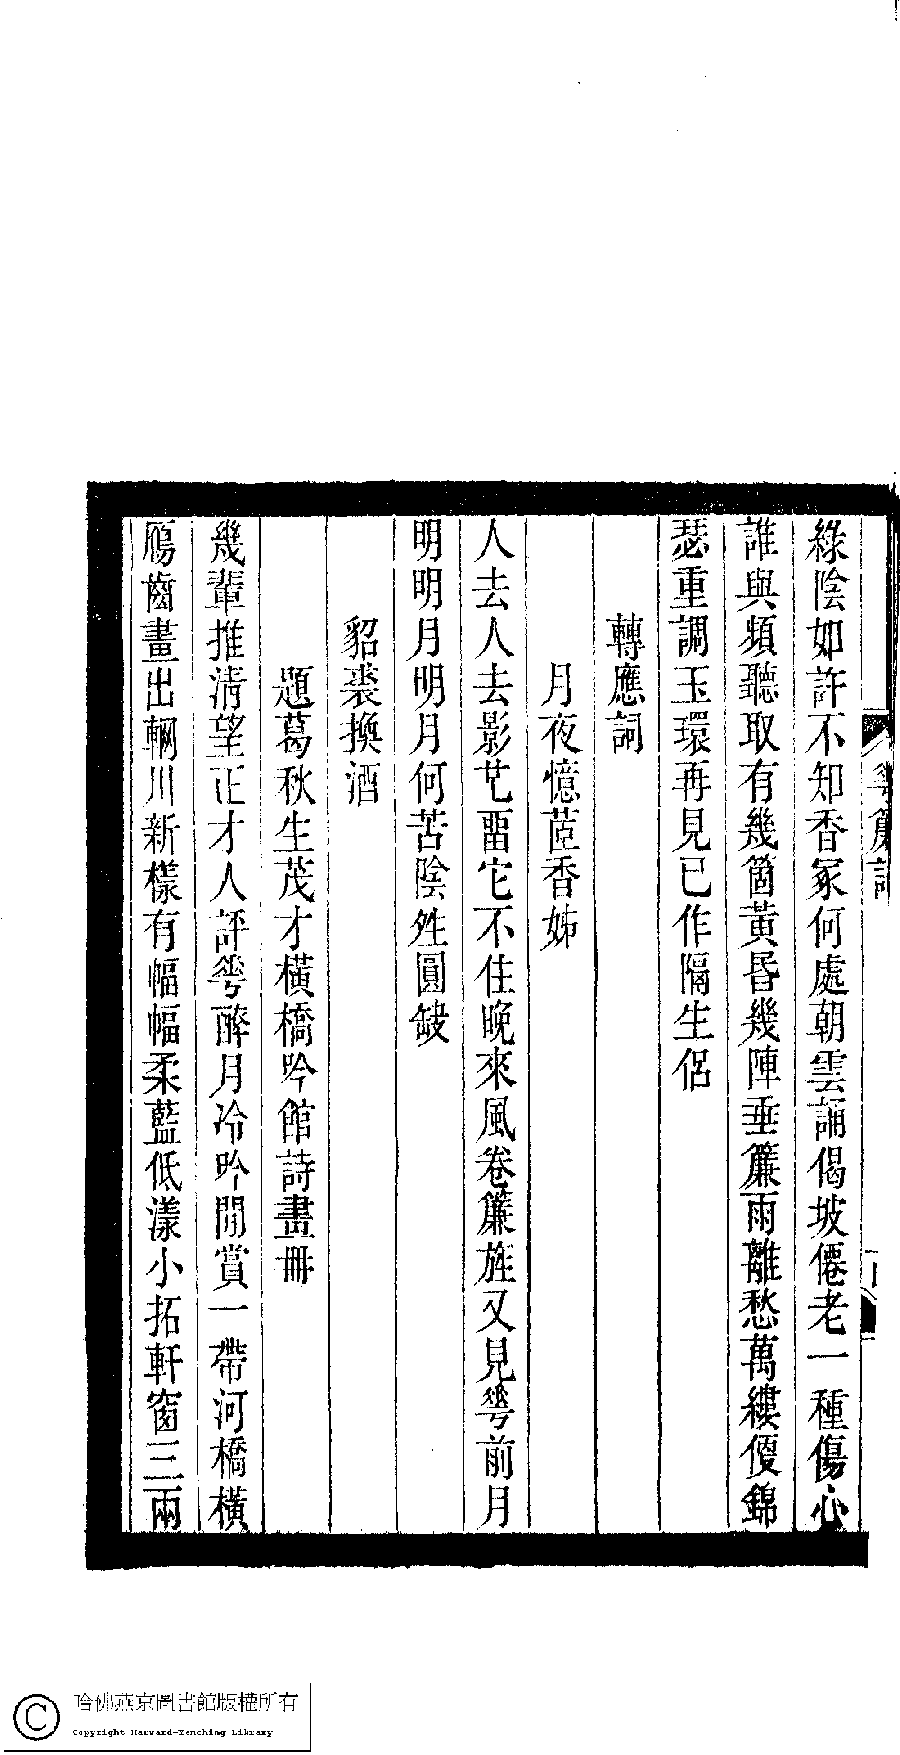 綠陰如許不知香冢何處朝雲誦偈坡僊老一種傷心
誰與頻聽取有幾箇黃昏幾陣垂簾雨離愁萬縷傻錦
瑟重調玉環再見已作隔生侶
轉應詞
月夜憶茝香姊
人去人去影也畱它不住晚來風卷簾旌又見蕚前月
明明月明月何苦陰姓圓缺
貂裘換酒
題葛秋生茂才橫橋吟館詩畫冊
幾輩推淸望正才人評蕚醉月冷吟閒賞一帶河橋橫
鴈齒畫出輞川新樣有幅幅柔藍低漾小拓軒窗三兩
簾詞
哈佛燕京圖書館版權所有
Copyright Harvard-Yenching Library